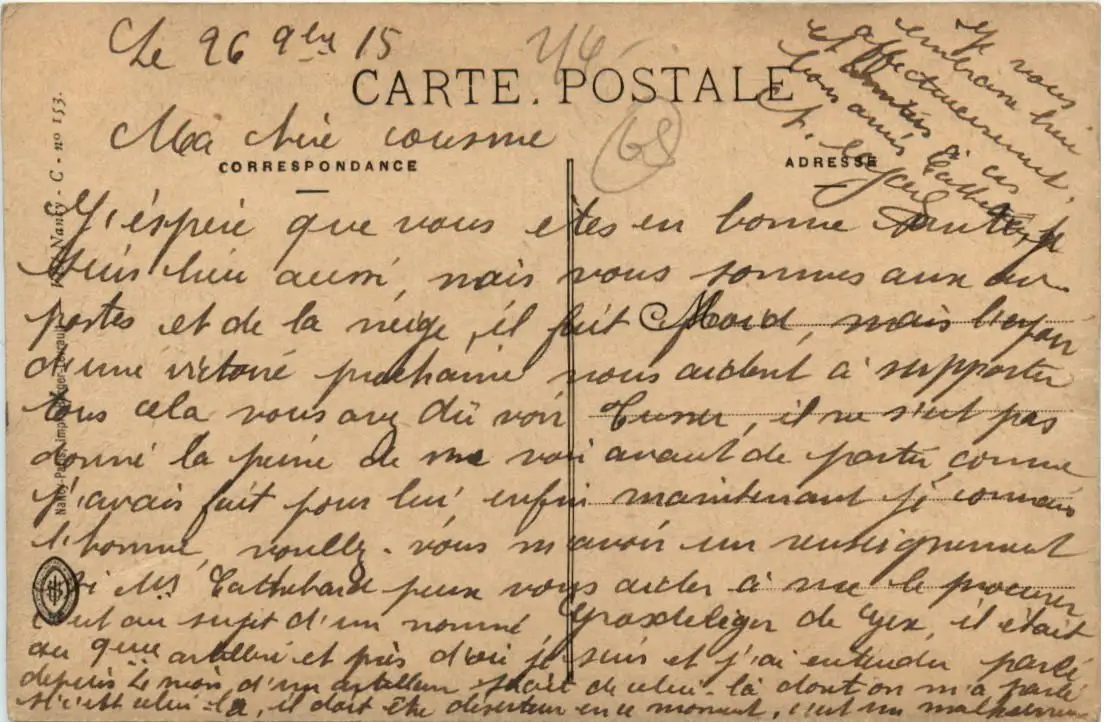 Le 26 9bre 15
CARTE POSTALE
Ma chère cousine
CORRESPONDANCE
ADRESSE
J'éspère que vous êtes en bonne santé, je
suis bien aussi, mais nous sommes aux
portes et de la neige, il fait froid, mais l'espoir
d'une victoire prochaine nous aident à supporter
tous cela vous avez dû voir il ne s'est pas
donné la peine de me voir avant de partir comme
j'avais fait pour lui, enfin maintenant je connais
l'homme, voullez-vous m'avoir un renseignement
si Mr peux vous aider à me le procurer
c'est au sujet d'un nommé, Grosdeliger de Gex, il était
au 9eme artillerie et près d'où je suis et j'ai entendu parlé
depuis le mois d'un artilleur de celui-là dont on m'a parlé
si c'est celui-là, il doit être déserteur en ce moment, c'est un malheureux
Je vous
embrasse bien
affectueusement,
et à ces
bons amis
68
Nancy - C - nº 153.